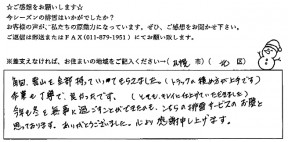 ☆ご感想をお願いします☆
今シーズンの排雪はいかがでしたか？
お客様の声が、私たちの原動力になっています。ぜひ、ご感想をお聞かせ下さい。
ご返信は郵送またはFAX(011-879-1951)にてお願い致します。
※差支えなければ、お住まいの地域をご記入ください…( 札幌 市) ( 北 区)
毎回、雪山を全部持っていってもらえました。(トラックへ積み方が上手です)
作業も丁寧で、良かったです。(とても、キレイに仕上げていただきました)
今年も冬を無事に過ごすことができたのも、こちらの排雪サービスのお陰と
思っております。ありがとうございました。心より感謝申し上げます。